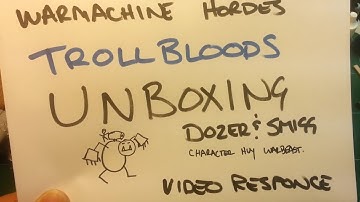 WARMACHINE HORDES
TROLLBLOODS
UNBOXING
DOZER & SMIGG
CHARACTER HVY WARBEAST.
VIDEO RESPONCE